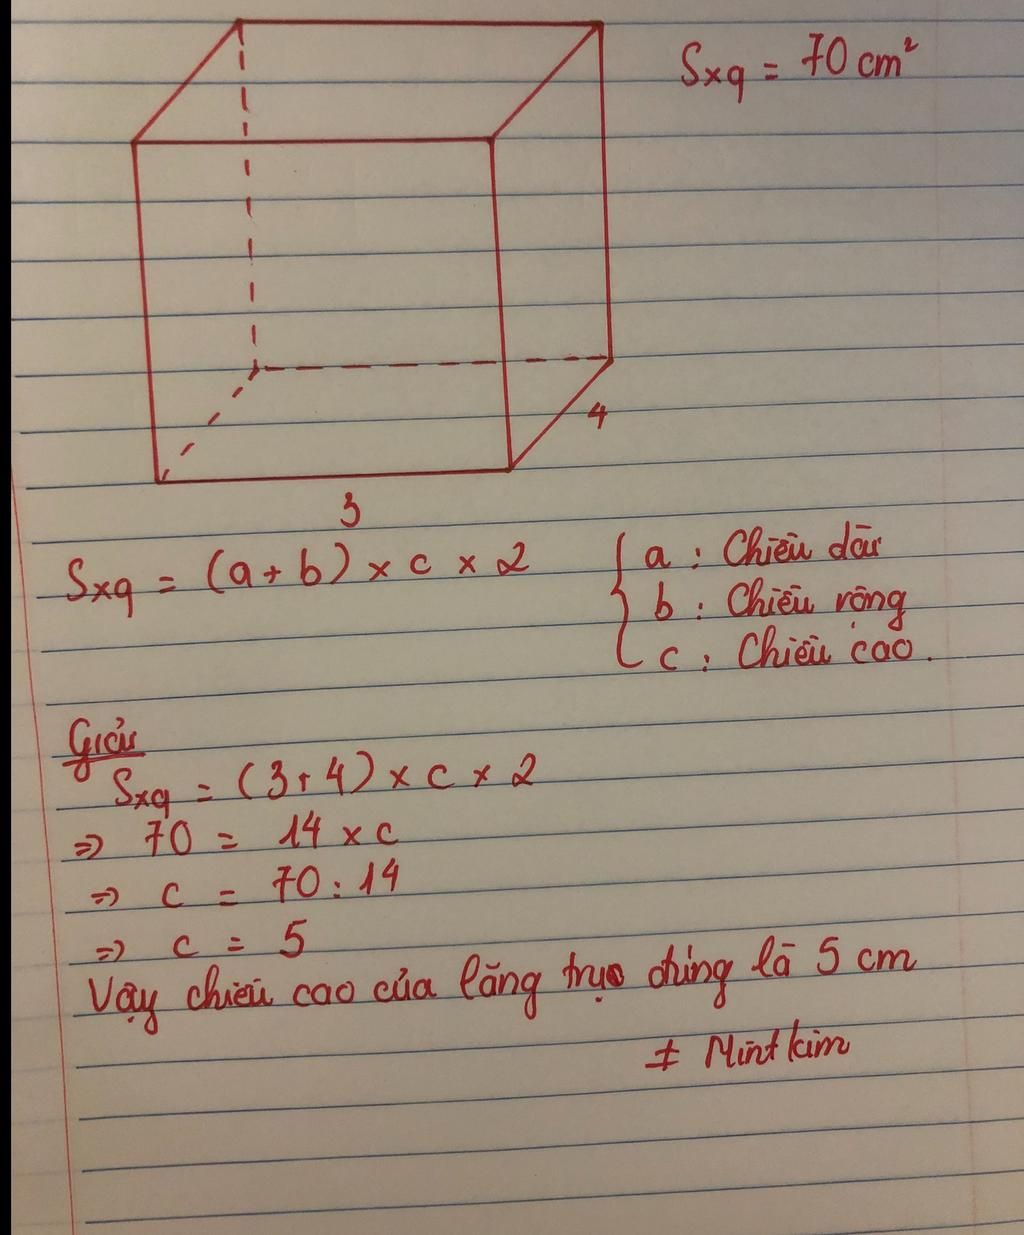 Sxq = 70 cm²
4
3
Sxq = (a + b) × c × 2
a : Chiều dài
b : Chiều rộng
c : Chiều cao.
Giải
Sxq = (3 + 4) × c × 2
=> 70 = 14 × c
=> c = 70 : 14
=> c = 5
Vậy chiều cao của lăng trụ đứng là 5 cm
# Mint kim